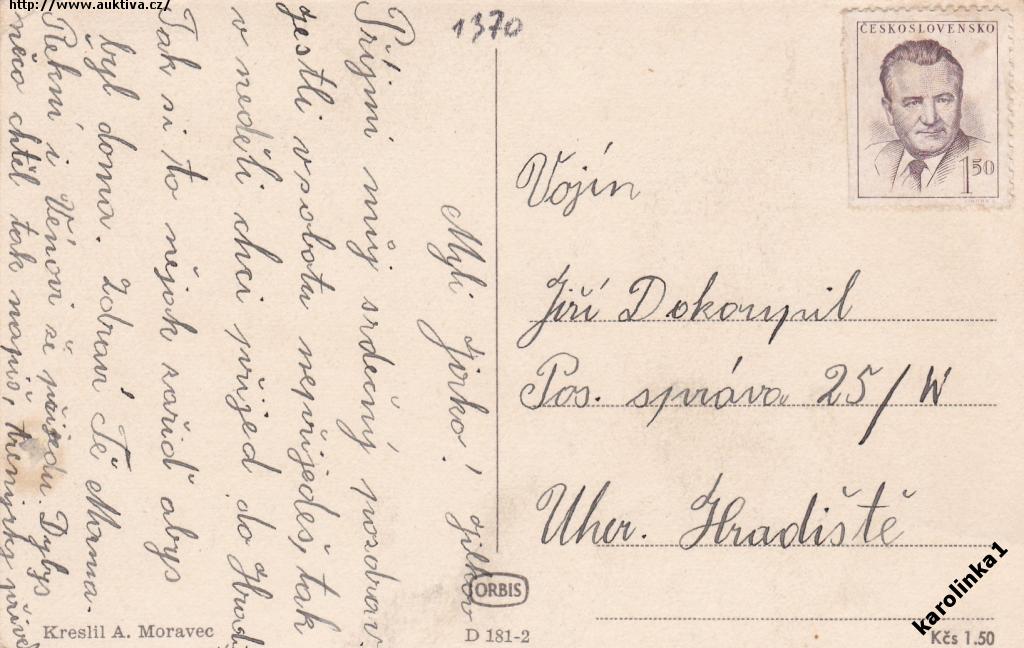 http://www.auktiva.cz/
1370
ČESKOSLOVENSKO
1 50
Milý Jirko! Jilkov
Příjmi můj srdečný pozdrav.
Jestli v sobotu nepřijedeš, tak
v neděli chci přijed do Hrad
Tak si to nějak zařiď abys
byl doma. Zdraví Tě Mamma.
Řekni i Vénovi že přijedu. Dybys
něco chtěl tak napiš, trenýrky přive
Vojín
Jiří Dokoupil
Pos. správa 25/W
Uher. Hradiště
Kreslil A. Moravec
ORBIS
D 181-2
Kčs 1.50
karolinka1